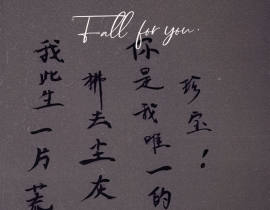 Fall for you.
我此生一片荒
拂去尘灰
你是我唯一的
珍宝！